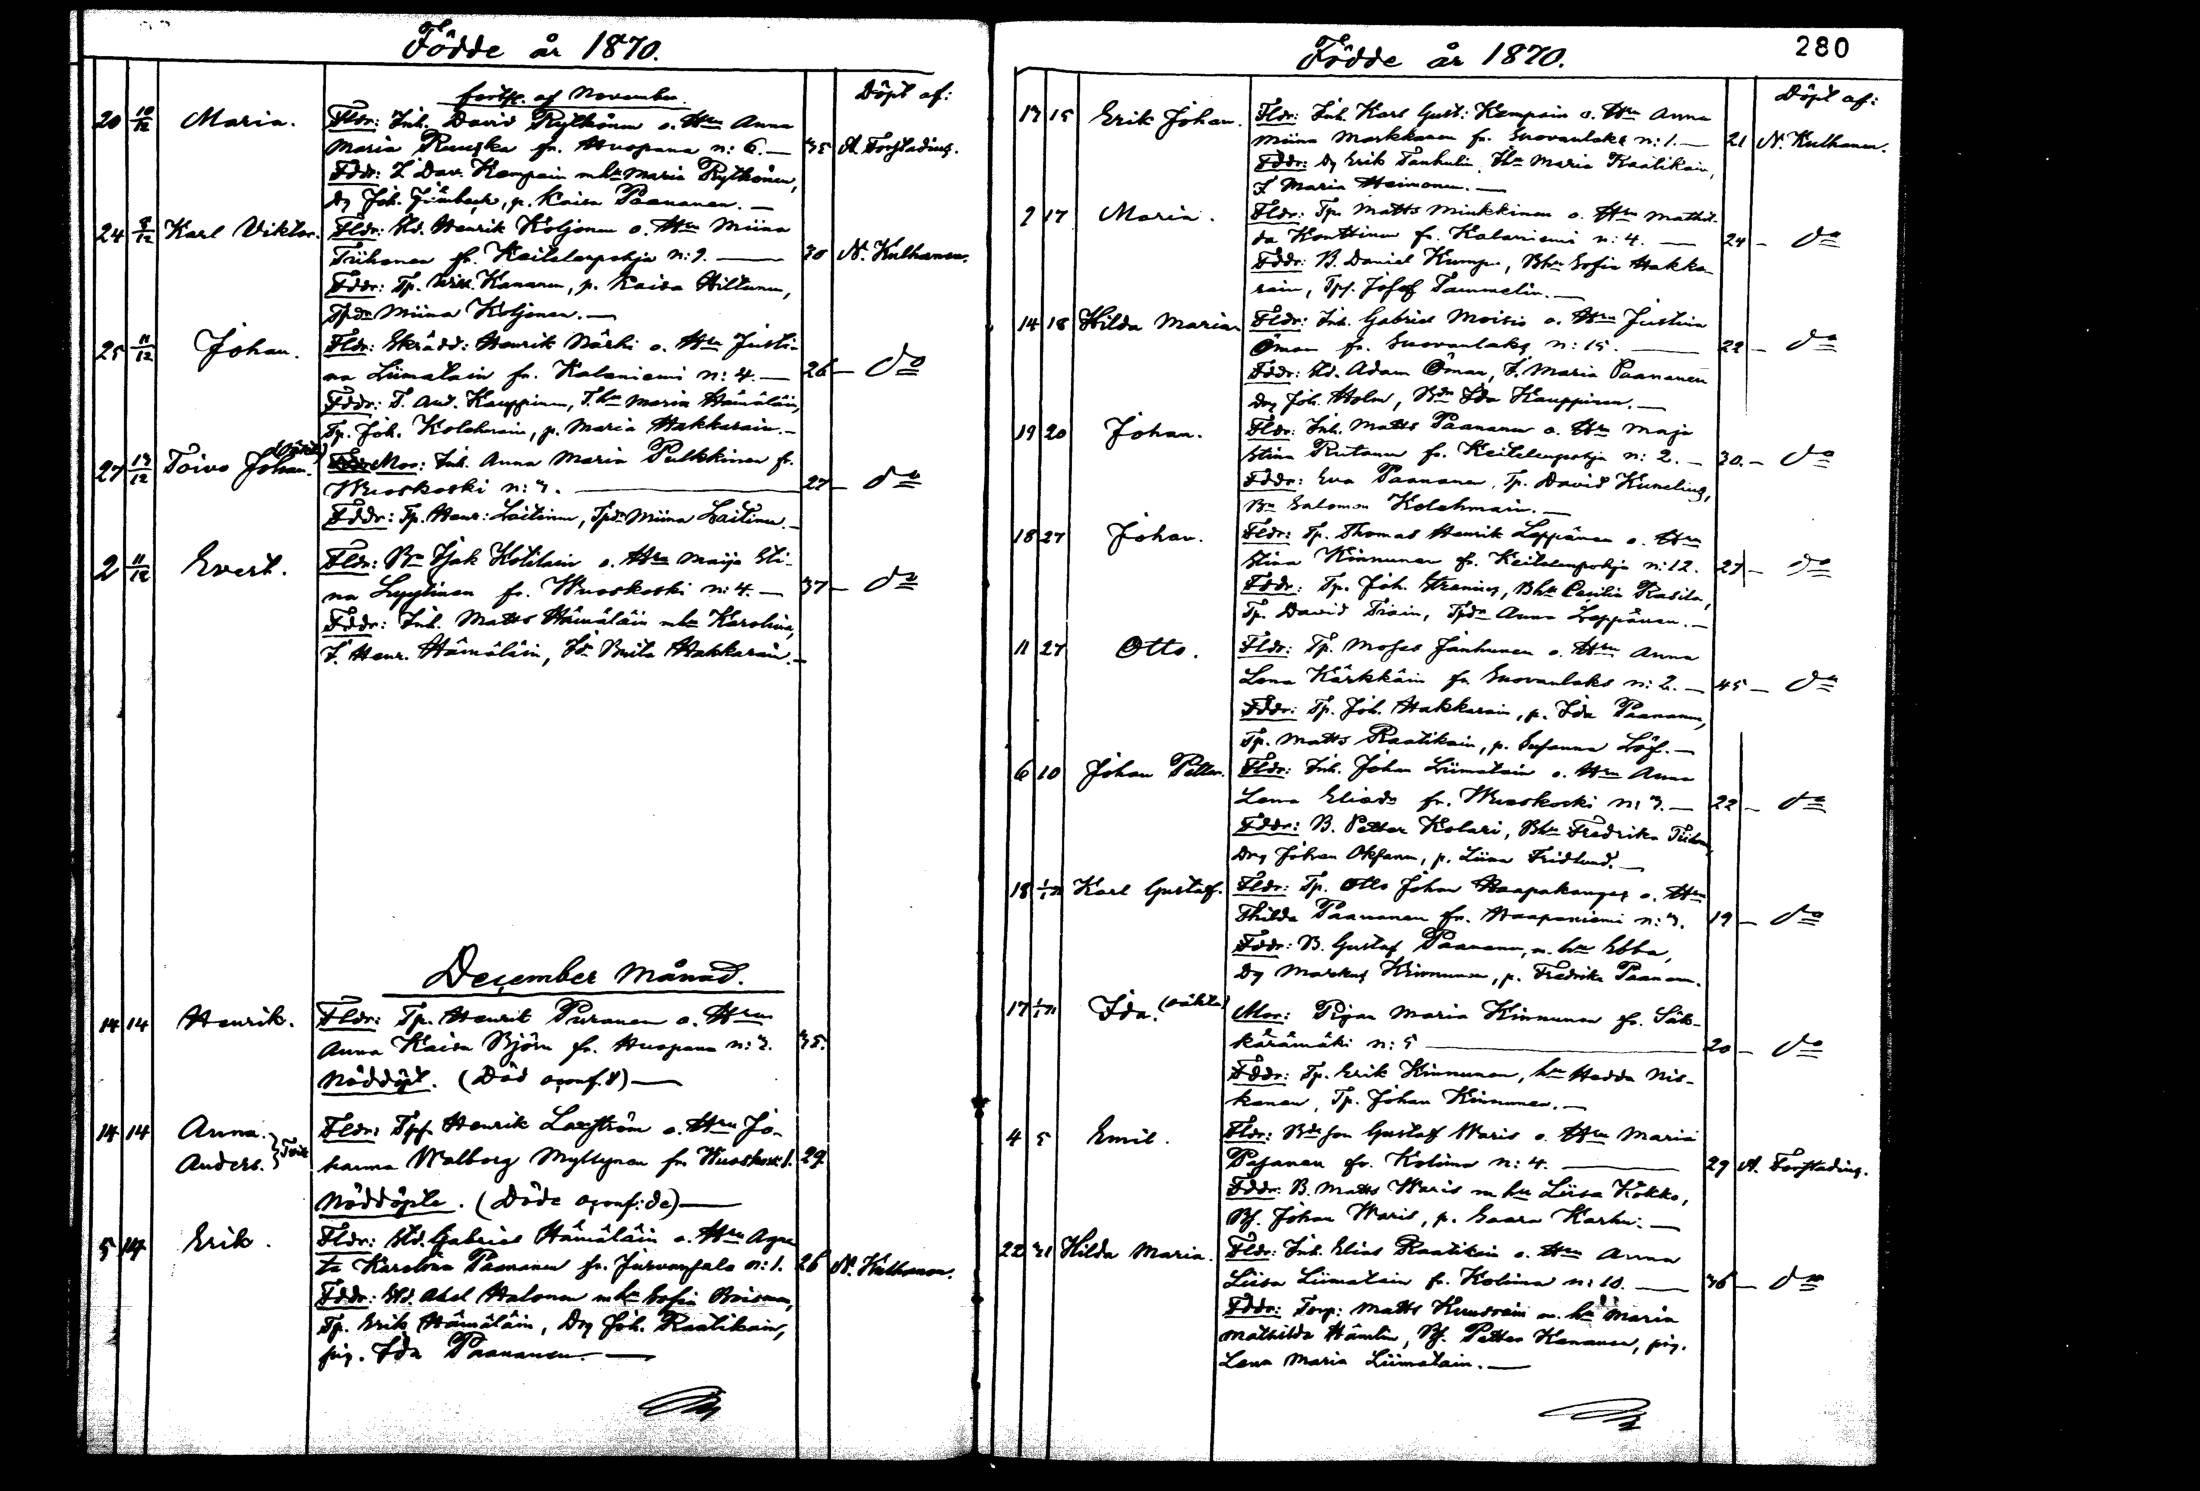 Födde år 1870.
forts. af November.
Döpt af:
20 10/12 Maria. Fldr: Inh. David Rytkönen o. Hru Anna
Maria Ruuska fr. Huopana n: 6. — 35 A. Forstadius.
Fddr: I. Dav. Kempain m hu Maria Rytkönen,
Dg Joh. p. Kaisa Paananen. —
24 8/12 Karl Viktor. Fldr: Sld. Henrik Koljonen o. Hru Miina
Tiihonen fr. Keitelenpohja n: 9. — 30 N. Kulhanen.
Fddr: Tp. Kananen, p. Kaisa Hiltunen,
Tpdr Miina Koljonen. —
25 11/12 Johan. Fldr: Skrädd: Henrik Närhi o. Hru Justi-
na Liimatain fr. Kalaniemi n: 4. — 26 — do
Fddr: T. And. Kauppinen, T.hu Maria Hämäläin,
Tp. Joh. Kolehmain, p. Maria Hakkarain. —
27 13/12 Toivo Johan. (oäkta) Mor: Inh. Anna Maria Pulkkinen fr.
Wuoskoski n: 3. — 27 — do
Fddr: Tp. Henr: Laitinen, Tpdr Miina Laitinen. —
2 11/12 Evert. Fldr: Bn Isak Kotilain o. Hru Maija Sti-
na Lyytinen fr. Wuoskoski n: 4. — 37 — do
Fddr: Inh. Matts Hämäläin m hu Karolina,
I. Henr. Hämäläin, Idr Brita Hakkarain. —
December Månad.
14 14 Henrik. Fldr: Tp. Henrik Puranen o. Hru
Anna Kaisa Björn fr. Huopana n: 3. 35.
Nöddöpt. (Död oconf:d) —
14 14 Anna. Fldr: Tpf Henrik Laxström o. Hru Jo-
Anders. } Tvil. hanna Walborg Myllynen fr. Wuoskoski 1. 29.
Nöddöpte. (Döde oconf:de) —
5 14 Erik. Fldr: Sld. Gabriel Hämäläin o. Hru Agne-
ta Karolina Paananen fr. Jurvansalo n: 1. 26 N. Kulhanen.
Fddr: Sld. Abel Halonen m hu Sofia
Tp. Erik Hämäläin, Dg Joh. Raatikain,
pig. Ida Paananen. —
Födde år 1870.
280
Döpt af:
13 15 Erik Johan. Fldr: Inh. Karl Gust: Kempain o. Hru Anna
Miina Markkanen fr. Suovanlaks n: 1. — 21 N. Kulhanen.
Fddr: Dg Erik Tanhulin, Ihu Maria Raatikain,
I Maria Heimonen. —
2 17 Maria. Fldr: Tp. Matts Minkkinen o. Hru Mathil-
da Konttinen fr. Kalaniemi n: 4. — 24 — do
Fddr: B. Daniel Kumpu, Bhu Sofia Hakka-
rain, Tpf. Josef Tammelin. —
14 18 Hilda Maria. Fldr: Inh. Gabriel Moisio o. Hru Justina
Öman fr. Suovanlaks n: 15. — 22 — do
Fddr: Sld. Adam Öman, I. Maria Paananen
Dg Joh. Holm, Bdr Ida Kauppinen. —
19 20 Johan. Fldr: Inh. Matts Paananen o. Hru Maja
Stina Rutanen fr. Keitelenpohja n: 2. — 30. — do
Fddr: Eva Paananen, Tp. David Kunelius,
Bn Salomon Kolehmain. —
18 27 Johan. Fldr: Tp. Thomas Henrik Leppänen o. Hru
Stina Kinnunen fr. Keitelenpohja n: 12. 27 — do
Fddr: Tp. Joh. Stranius, Bhu Cecilia Rasila,
Tp. David Tiain, Tpdr Anna Leppänen. —
11 27 Otto. Fldr: Tp. Moses Jänhunen o. Hru Anna
Lena Kärkkäin fr Suovanlaks n: 2. — 45 — do
Fddr: Tp. Joh. Hakkarain, p. Ida Paananen,
Tp. Matts Raatikain, p. Susanna Löf. —
6 10 Johan Petter. Fldr: Inh. Johan Liimatain o. Hru Anna
Lena Eliasdr fr. Wuoskoski n: 3. — 22 — do
Fddr: B. Petter Kolari, Bhu Fredrika Tiihonen,
Drg Johan Oksanen, p. Liina Fridlund. —
18 1/1 71 Karl Gustaf. Fldr: Tp. Otto Johan Haapakangas o. Hru
Thilda Paananen fr. Haapaniemi n: 3. 19 — do
Fddr: B. Gustaf Paananen, m. hu Ebba,
Dg Markus Kinnunen, p. Fredrika Paananen.
17 1/1 71 Ida. (oäkta) Mor: Pigan Maria Kinnunen fr. Säk-
kärämäki n: 5 — 20 — do
Fddr: Tp. Erik Kinnunen, hu Hedda Nis-
kanen, Tp. Johan Kinnunen. —
4 5 Emil. Fldr: Bdeson Gustaf Waris o. Hru Maria
Pasanen fr. Kolima n: 4. — 29 A. Forstadius.
Fddr: B. Matts Waris m hu Liisa Kokko,
Bf. Johan Waris, p. Saara Karhu. —
22 31 Hilda Maria. Fldr: Inh. Elias Raatikain o. Hru Anna
Liisa Liimatain fr. Kolima n: 10. — 36 — do
Fddr: Torp: Matts Kuusvain m. hu Maria
Mathilda Hämälin, Bf. Petter Kananen, pig.
Lena Maria Liimatain. —